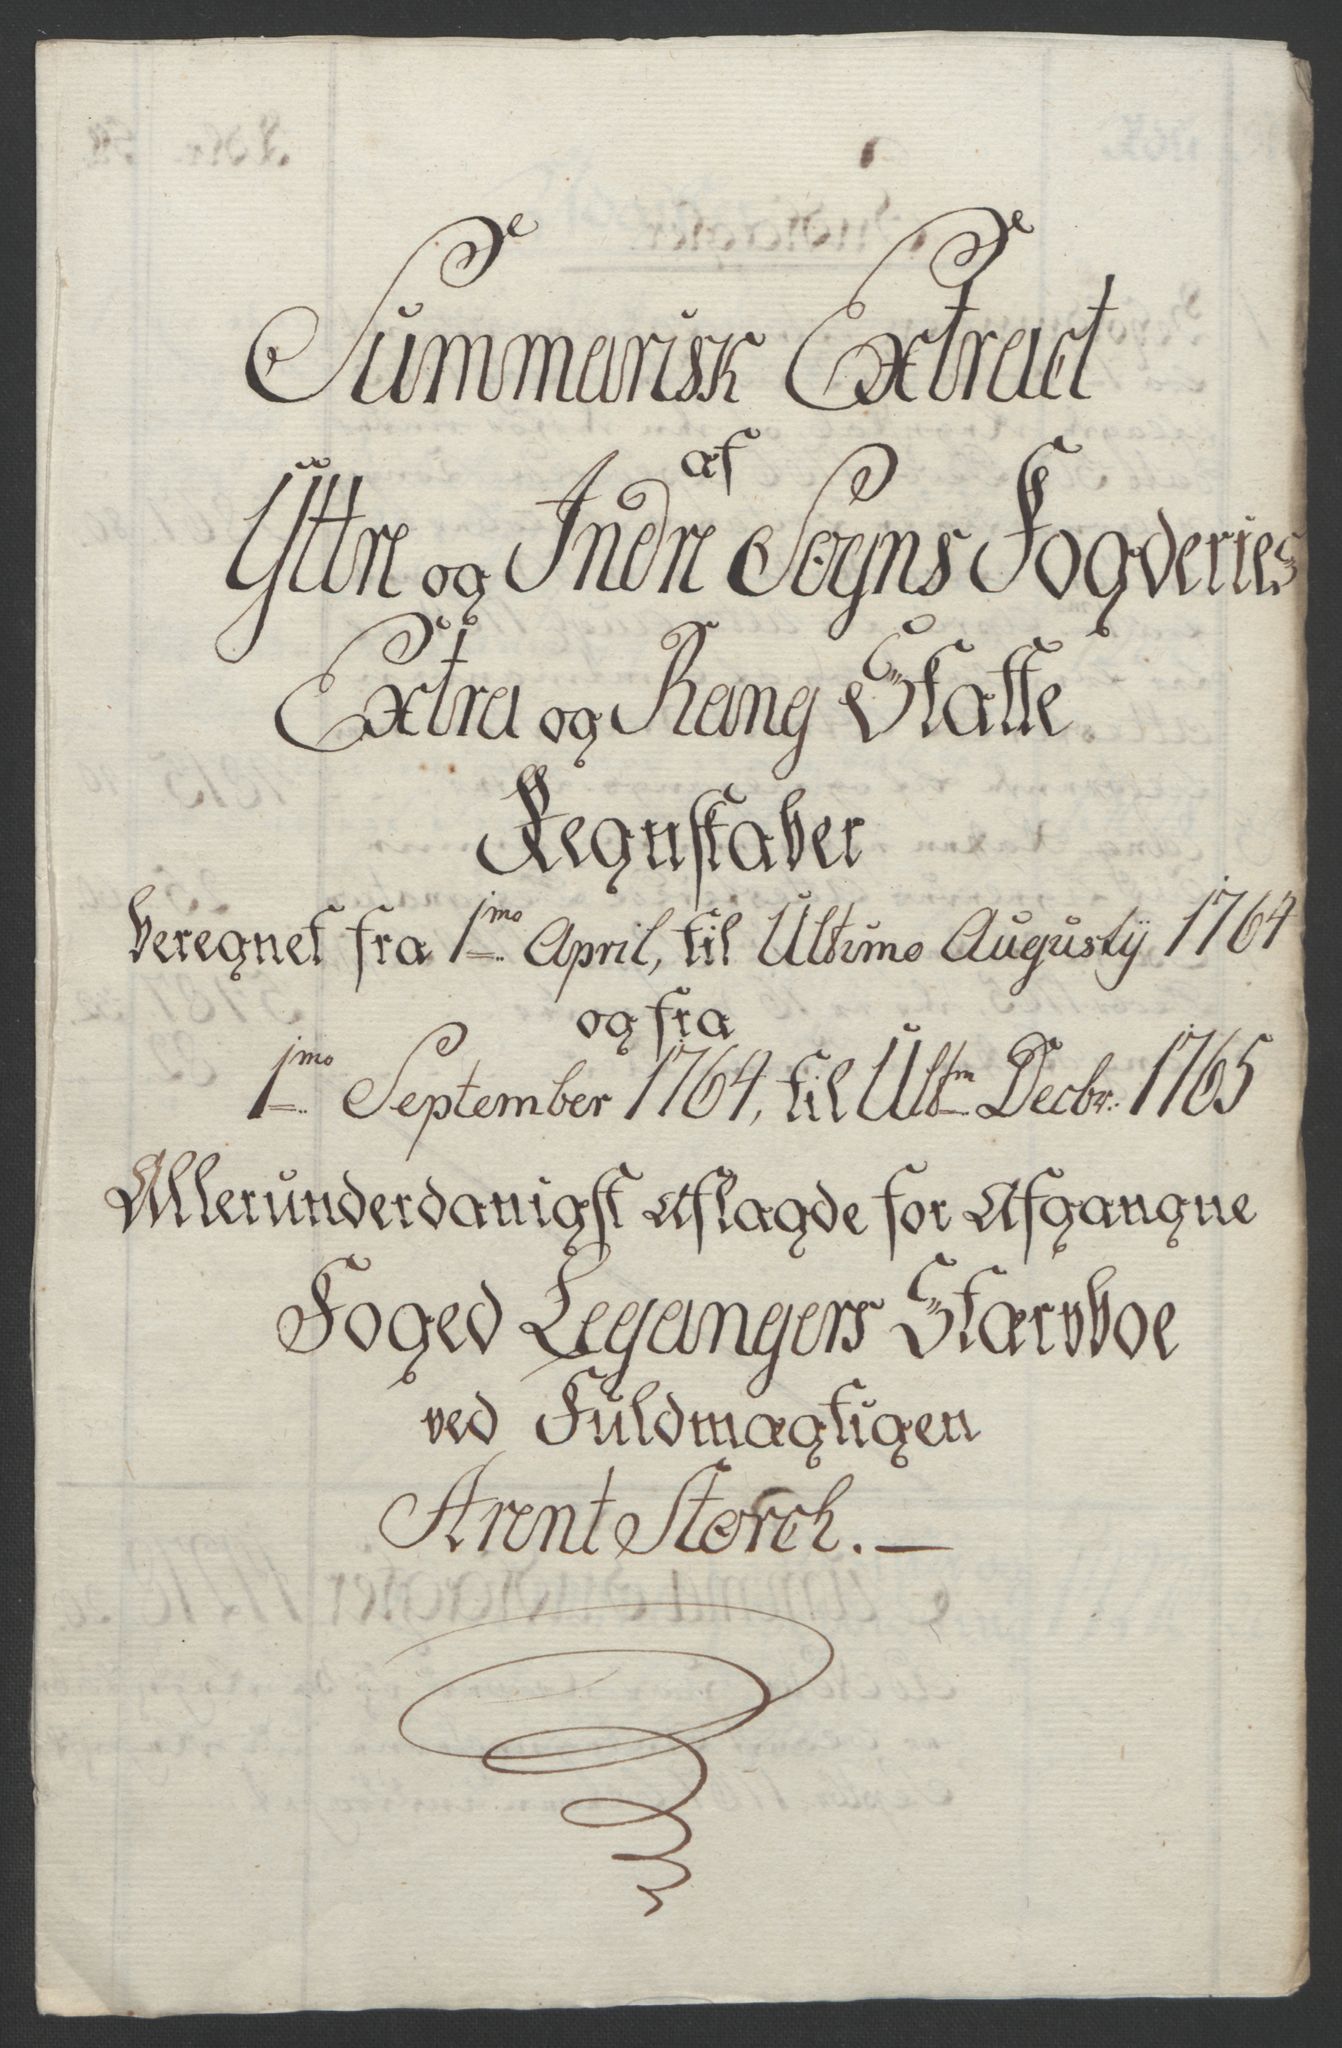 Summarisk Extract
af
Yttre og Indre Sogns Fogderies
Extra og Rang Skatte
Regnskaber
beregnet fra 1mo April, til Ultimo Augusty 1764
og fra
1mo September 1764, til Ultm Decbr. 1765
Allerunderdanigst Aflagde for Afgangne
Foged Legangers Stærvboe
ved Fuldmægtigen
Arent Storch. —